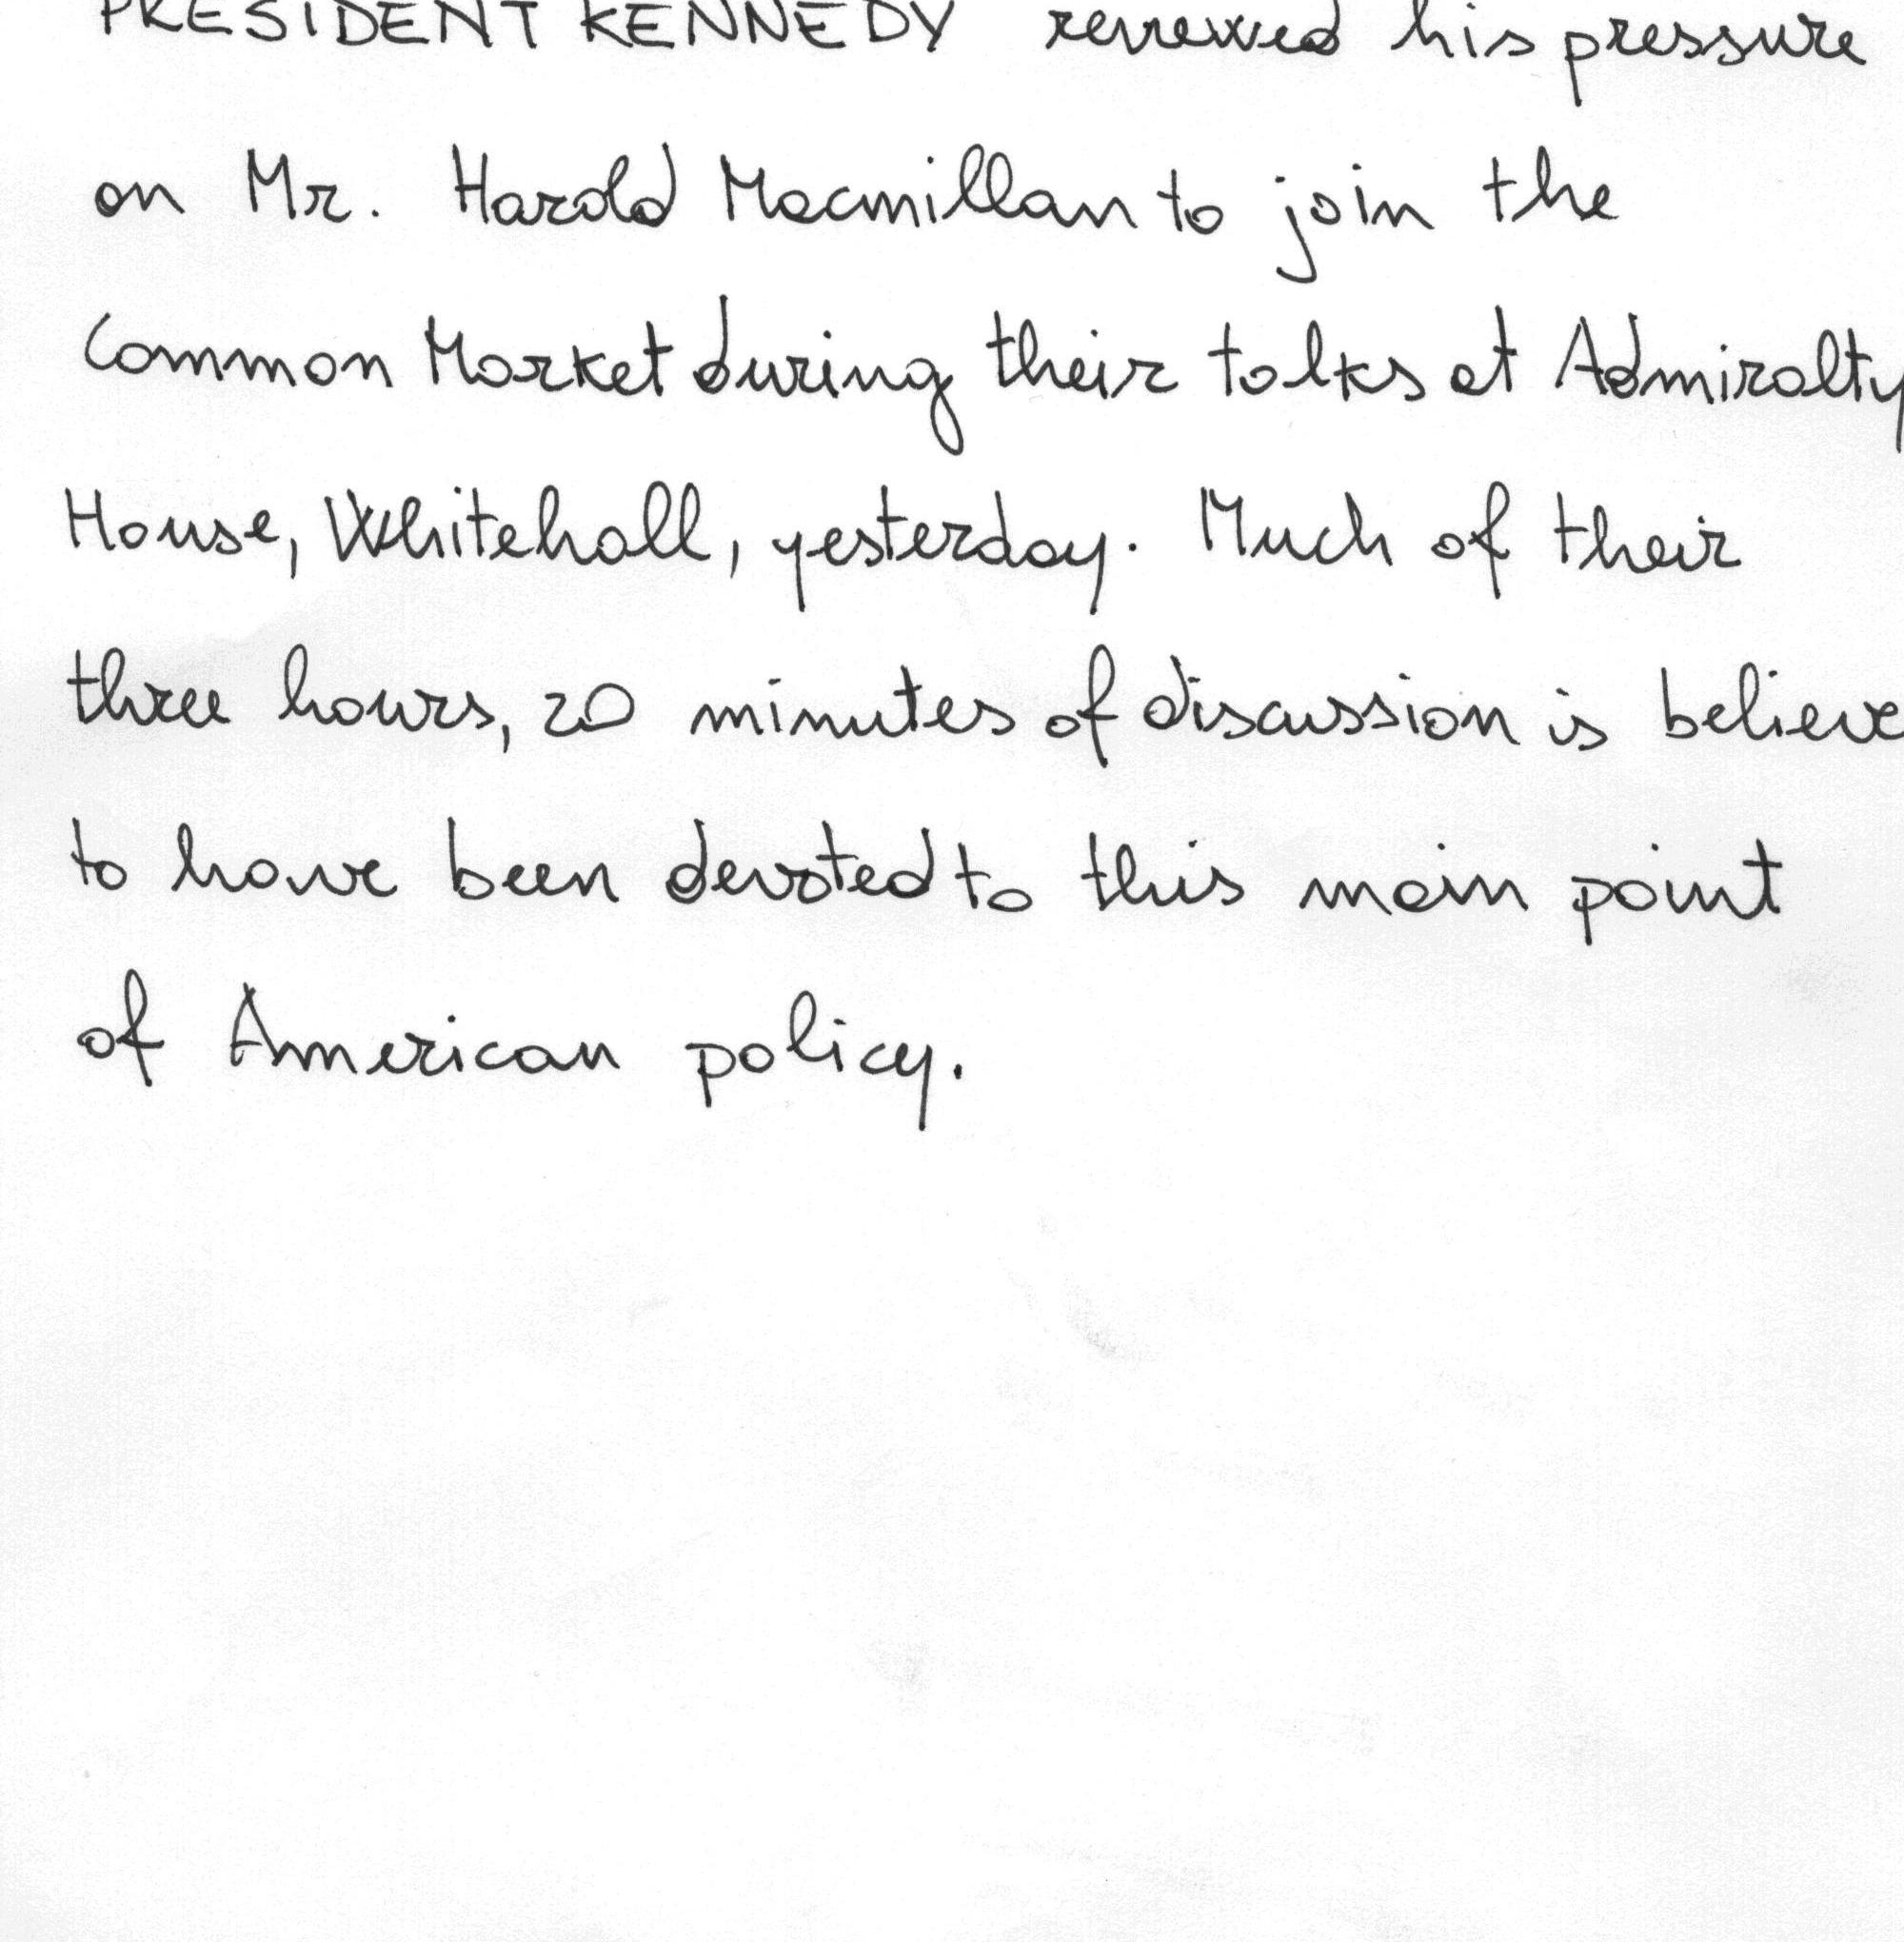 PRESIDENT KENNEDY renewed his pressure
on Mr. Harold Macmillan to join the
Common Market during their talks at Admiralty
House, Whitehall, yesterday. Much of their
three hours, 20 minutes of discussion is believe
to have been devoted to this main point
of American policy.